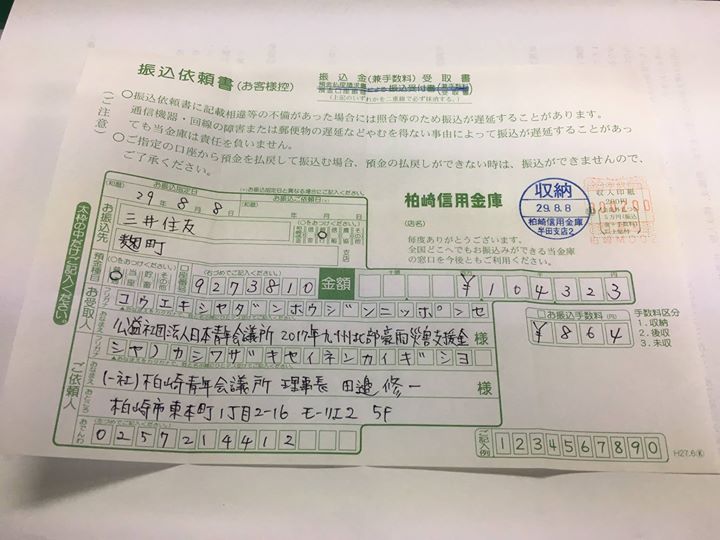 振込依頼書(お客様控)
振込金(兼手数料)受取書
振込受付書
(上記のいずれかを二重線で必ず抹消する。)
(ご注意)
○振込依頼書に記載相違等の不備があった場合には照会等のため振込が遅延することがあります。
通信機器・回線の障害または郵便物の遅延などやむを得ない事由によって振込が遅延することがあっ
ても当金庫は責任を負いません。
○ご指定の口座から預金を払戻して振込む場合、預金の払戻しができない時は、振込ができませんので、
ご了承ください。
太枠の中だけご記入ください。
(和暦) お振込指定日
(和暦) お振込ご依頼日
29 8 8
お振込先
三井住友
麹町
支店
預金種目
口座番号
(右づめでご記入ください)
9273810
金額
¥104323
柏崎信用金庫
(店名)
毎度ありがとうございます。
全国どこへでもお振込みができる当金庫
の窓口を今後ともご利用ください。
収納
29.8.8
柏崎信用金庫
半田支店2
収入印紙
200円
お受取人
フリガナ
コウエキシヤダンホウジンニッポンセ
公益社団法人日本青年会議所 2017年九州北部豪雨災害支援金 様
お振込手数料 (円)
¥864
手数料区分
1. 収納
2. 後収
3. 未収
ご依頼人
フリガナ
シヤ)カシワザキセイネンカイギシヨ
おなまえ
(一社)柏崎青年会議所 理事長 田邉修一 様
おところ
柏崎市東本町1丁目2-16 モーリエ2 5F
おでんわ
(右づめでご記入ください)
0257214412
ご記入例
1234567890
H27.6